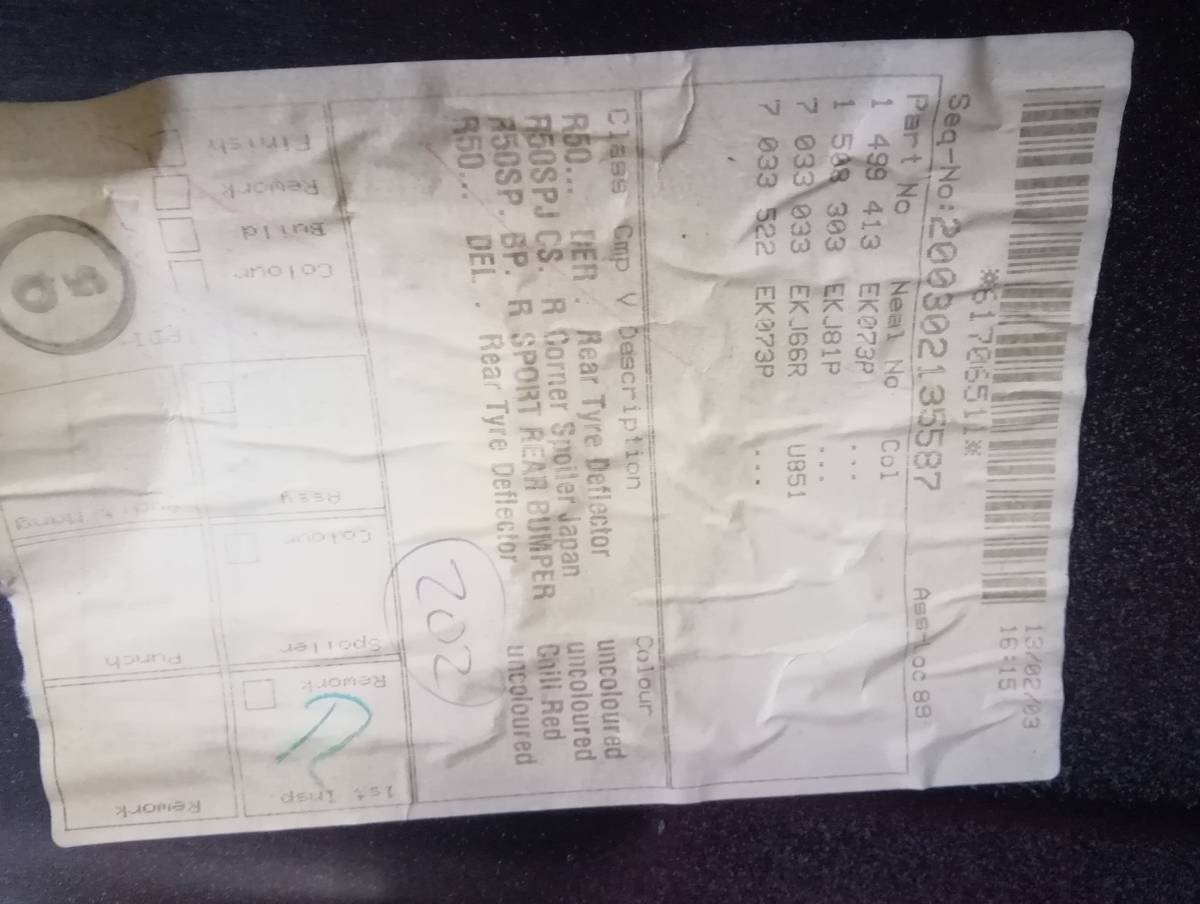 13/02/03
16:15
*6170651*
Seq-No:200302135587 Ass-loc 89
Part No Neal No Col
1 499 413 EK073P ...
1 508 303 EKJ81P ...
7 033 033 EKJ66R U851
7 033 522 EK073P ...
Class Cmp V Description Colour
R50... DER . Rear Tyre Deflector uncoloured
R50SPJ CS. R Corner Spoiler Japan uncoloured
R50SP. BP. R SPORT REAR BUMPER Chili Red
R50... DEL . Rear Tyre Deflector uncoloured
202
1st Insp
Rework
Spoiler
Colour
Assy
Colour
Build
Rework
Finish
Rework
Punch
50